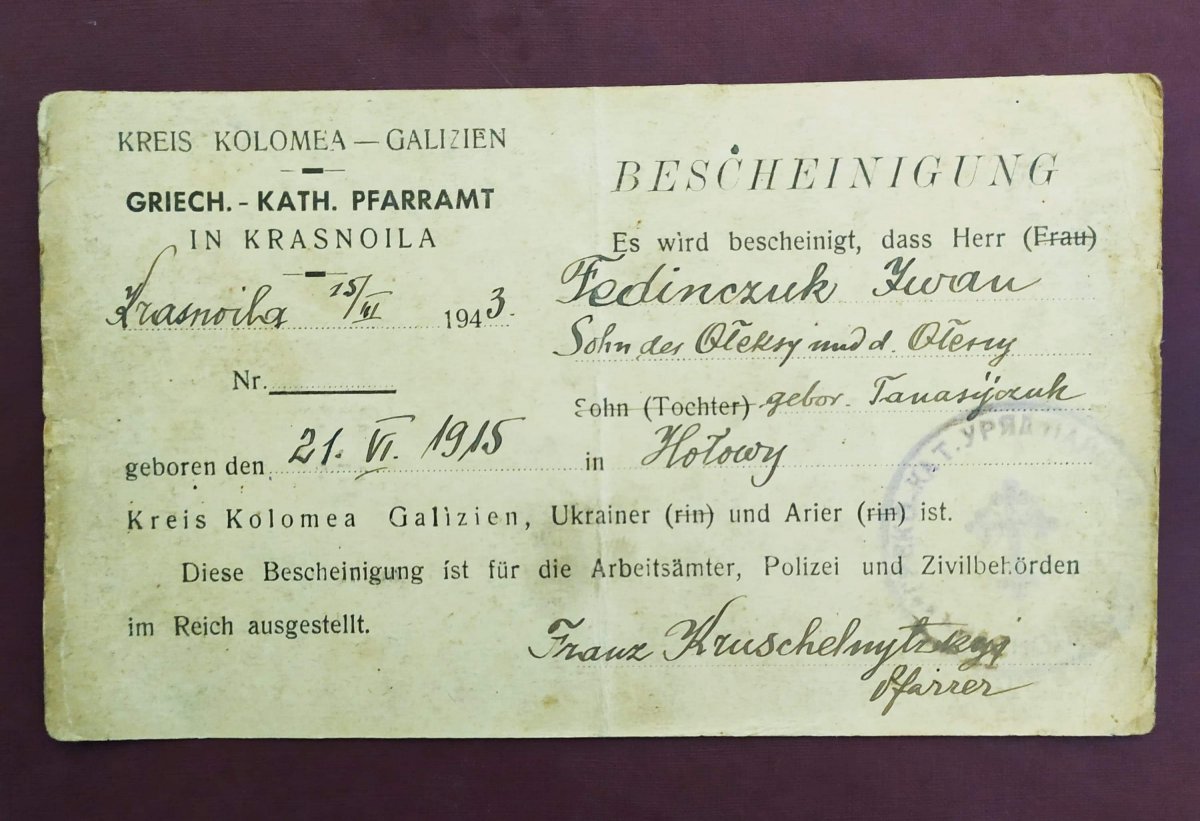 KREIS KOLOMEA — GALIZIEN
GRIECH. - KATH. PFARRAMT
IN KRASNOILA
Krasnoila 15/III 1943.
Nr.
BESCHEINIGUNG
Es wird bescheinigt, dass Herr (Frau)
Fedinczuk Iwan
Sohn des Ołeksy und d. Ołeny
Sohn (Tochter) gebor. Tanasijczuk
geboren den 21. VI. 1915 in Hołowy
Kreis Kolomea Galizien, Ukrainer (rin) und Arier (rin) ist.
Diese Bescheinigung ist für die Arbeitsämter, Polizei und Zivilbehörden
im Reich ausgestellt.
Franz Kruschelnytzkyj
Pfarrer
КАТ. УРЯД